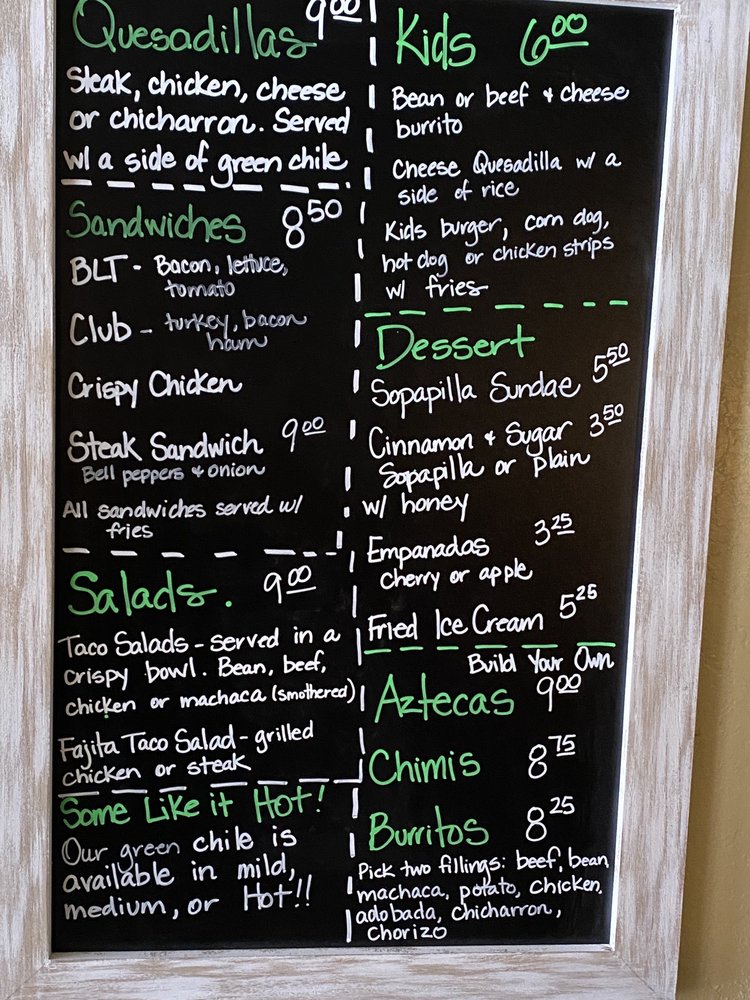 Quesadillas 9.00
Steak, chicken, cheese
or chicharron. Served
w/ a side of green chile
Sandwiches 8.50
BLT - Bacon, lettuce,
tomato
Club - turkey, bacon
ham
Crispy Chicken
Steak Sandwich 9.00
Bell peppers & onion
All sandwiches served w/
fries
Salads. 9.00
Taco Salads - served in a
crispy bowl. Bean, beef,
chicken or machaca (smothered)
Fajita Taco Salad - grilled
chicken or steak
Some Like it Hot!
Our green chile is
available in mild,
medium, or Hot!!
Kids 6.00
Bean or beef & cheese
burrito
Cheese Quesadilla w/ a
side of rice
Kids burger, corn dog,
hot dog or chicken strips
w/ fries
Dessert
Sopapilla Sundae 5.50
Cinnamon & Sugar 3.50
Sopapilla or Plain
w/ honey
Empanadas 3.25
cherry or apple
Fried Ice Cream 5.25
Build Your Own
Aztecas 9.00
Chimis 8.75
Burritos 8.25
Pick two fillings: beef, bean,
machaca, potato, chicken,
adobada, chicharron,
chorizo